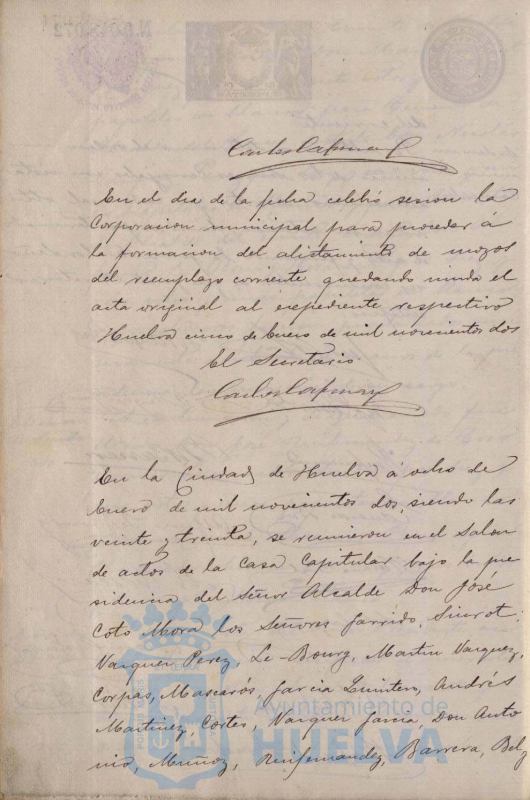 N.5.048.072
En el dia de la fecha celebró sesion la
Corporacion municipal para proceder á
la formacion del alistamiento de mozos
del reemplazo corriente quedando unida el
acta original al expediente respectivo
Huelva cinco de Enero de mil novecientos dos
El Secretario
En la Ciudad de Huelva á ocho de
Enero de mil novecientos dos, siendo las
veinte y treinta, se reunieron en el Salon
de actos de la Casa Capitular bajo la pre
sidencia del Señor Alcalde Don José
Coto Mora los Señores Garrido, Siurot,
Vazquez Perez, Le-Bourg, Martin Vazquez,
Corpas, Mascarós, Garcia Quintero, Andrés
Martinez, Cortés, Vazquez Garcia, Don Anto
nio, Muñoz, Ruifernandez, Barrera,
Ayuntamiento de
HUELVA